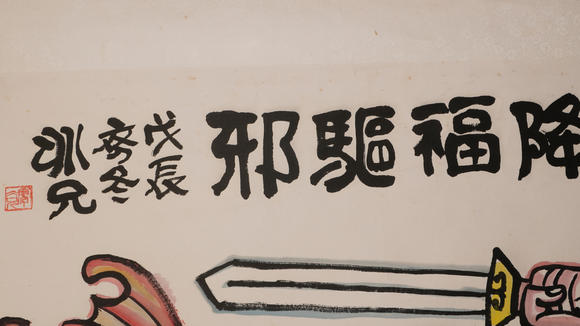 降福驅邪
戊辰
冬
冰兄